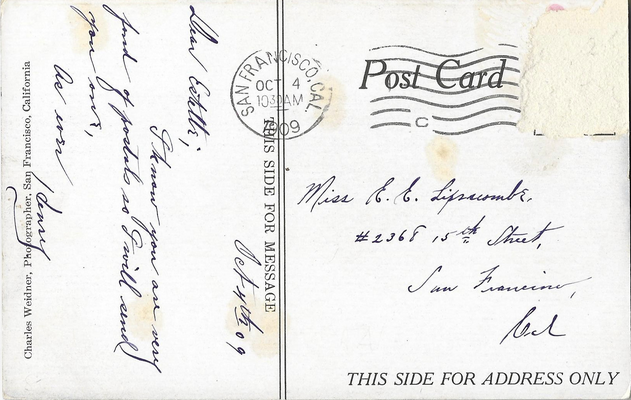 Post Card
SAN FRANCISCO, CAL.
OCT 4
1030AM
1909
C
THIS SIDE FOR MESSAGE
Oct 4th 09
Dear Estelle,
I know you are very
fond of postals so I will send
you one,
As ever
Henry
Charles Weidner, Photographer, San Francisco, California
Miss E. E. Lipscombe,
#2368 15th Street,
San Francisco,
Cal
THIS SIDE FOR ADDRESS ONLY